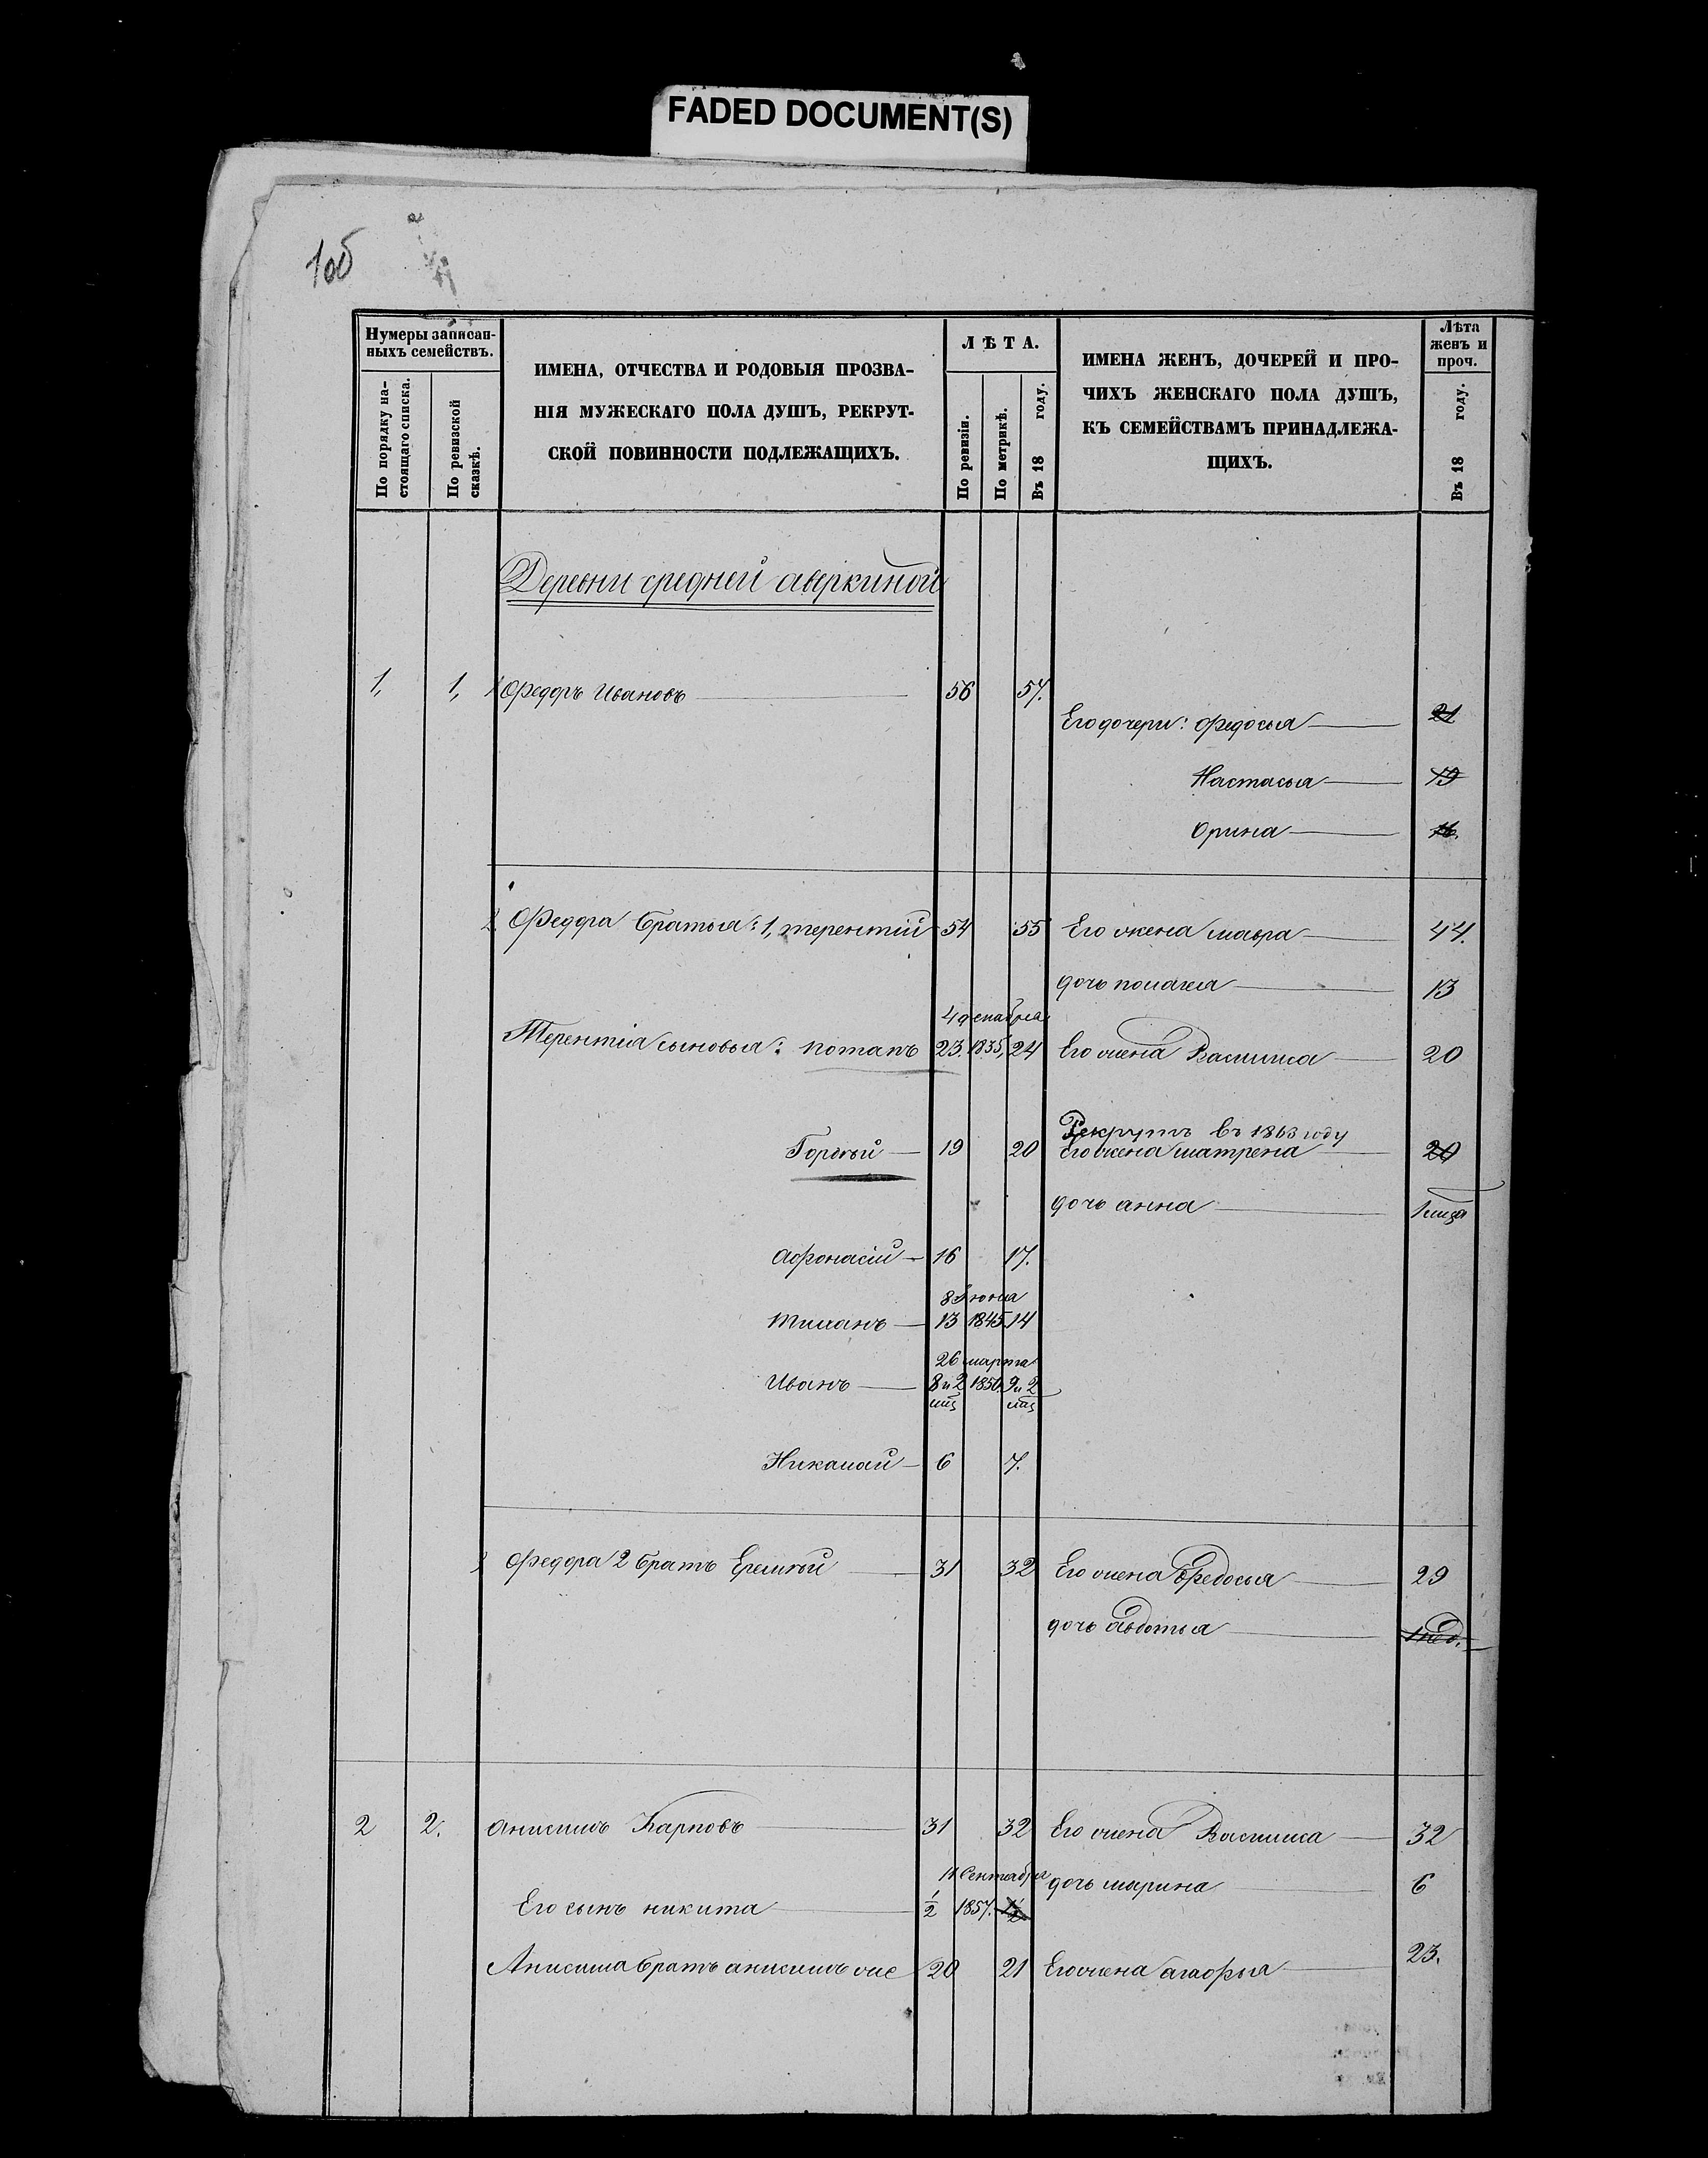 FADED DOCUMENT(S)
1об
Нумеры записан-
ныхъ семействъ.
По порядку на-
стоящаго списка.
По ревизской
сказкѣ.
ИМЕНА, ОТЧЕСТВА И РОДОВЫЯ ПРОЗВА-
НІЯ МУЖЕСКАГО ПОЛА ДУШЪ, РЕКРУТ-
СКОЙ ПОВИННОСТИ ПОДЛЕЖАЩИХЪ.
ЛѢТА.
По ревизіи.
По метрикѣ.
Въ 18 году.
ИМЕНА ЖЕНЪ, ДОЧЕРЕЙ И ПРО-
ЧИХЪ ЖЕНСКАГО ПОЛА ДУШЪ,
КЪ СЕМЕЙСТВАМЪ ПРИНАДЛЕЖА-
ЩИХЪ.
Лѣта
женъ и
проч.
Въ 18 году.
Деревни средней аверкиной
1, 1, 1 Федоръ Ивановъ 56 57.
Его дочери: Федосья 21
Настасья 19
Орина 16.
2 Федора братья: 1, терентій 54 55 Его жена мавра 44.
дочь полагея 13
4 декабря
Терентія сыновья: потапъ 23. 1835, 24 Его жена Василиса 20
Рекрутъ въ 1863 году
Гордѣй 19 20 Его жена матрена 20
дочь анна 1 мцд
Афонасій 16 17.
8 Июня
тимонъ 13 1845 14
26 марта
Иванъ 8 и 2 1850. 9 и 2
мц мц
Николай 6 7.
3 Федора 2 братъ Еремѣй 31 32 Его жена Федосья 29
дочь авдотья 1 нед.
2 2. анисимъ Карповъ 31 32 Его жена Василиса 32
14 Сентября дочь марина 6
Его сынъ никита 1/2 1857. 1 1/2
Анисима братъ анисимъ же 20 21 Его жена агафья 23.